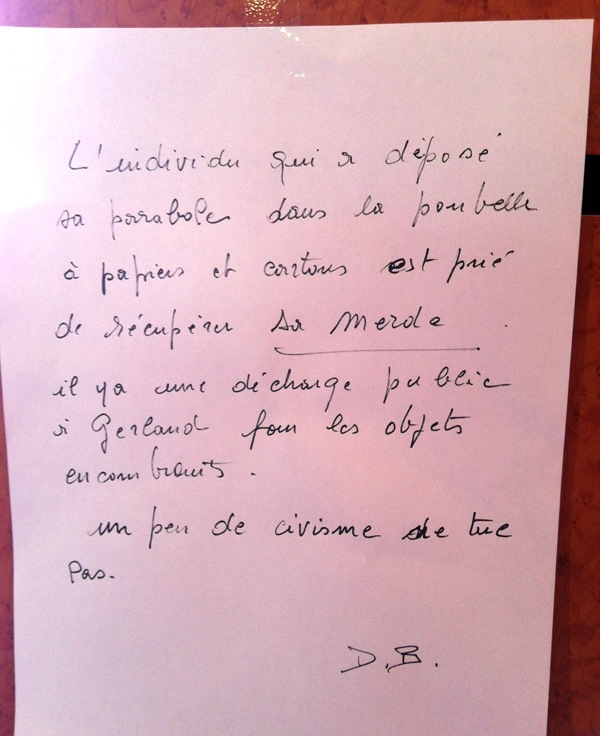 L'individu qui a déposé
sa parabole dans la poubelle
à papiers et cartons est prié
de récupérer sa merde .
il y a une décharge public
à Gerland pour les objets
encombrants .
un peu de civisme ne tue
Pas.
D.B.